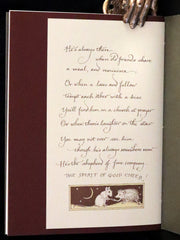 He's always there
when old friends share
a meal, and reminisce.
Or when a lass and fellow
tempt each other with a kiss
You'll find him in a church at prayer
Or when there's laughter on the stair
You may not ever see him
though he's always somewhere near
He's the shepherd of fine company
THE SPIRIT OF GOOD CHEER!